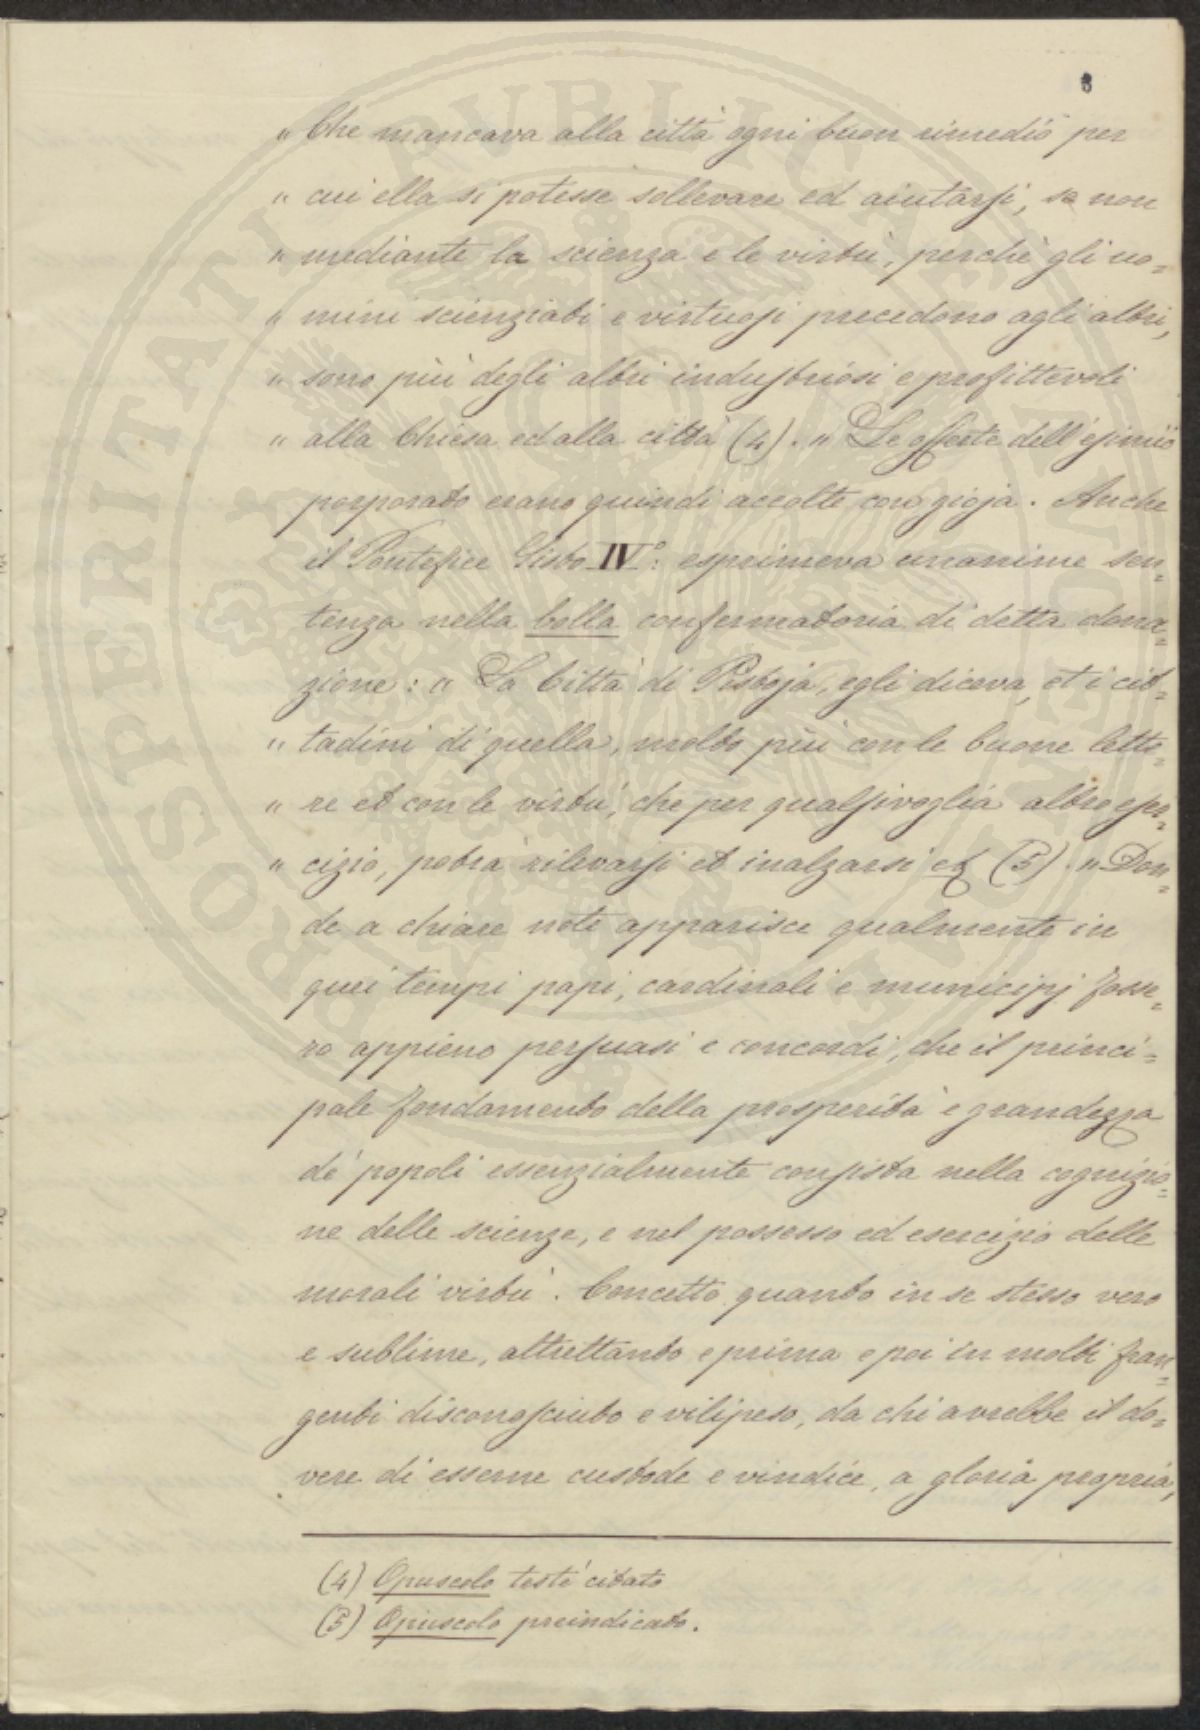 3
„ Che mancava alla città ogni buon rimedio per
„ cui ella si potesse sollevare ed aiutarsi, se non
„ mediante la scienza e le virtù, perchè gli uo=
„ mini scienziati e virtuosi precedono agli altri,
„ sono più degli altri industriosi e profittevoli
„ alla Chiesa ed alla città (4). „ Le offerte dell'esimio
porporato erano quindi accolte con gioja. Anche
il Pontefice Sisto IV°: esprimeva unanime sen=
tenza nella bolla confermatoria di detta dona=
zione: „ La Città di Pistoja, egli diceva, et i cit=
„ tadini di quella, molto più con le buone lette=
„ re et con le virtù, che per qualsivoglia altro eser=
„ cizio, potrà rilevarsi et inalzarsi (5). „ Don=
de a chiare note apparisce qualmente in
quei tempi papi, cardinali e municipj fosse=
ro appieno persuasi e concordi, che il princi=
pale fondamento della prosperità e grandezza
de' popoli essenzialmente consista nella cognizio=
ne delle scienze, e nel possesso ed esercizio delle
morali virtù. Concetto quanto in se stesso vero
e sublime, altrettanto e prima e poi in molti fran=
genti disconosciuto e vilipeso, da chi avrebbe il do=
vere di esserne custode e vindice, a gloria propria,
(4) Opuscolo testè citato
(5) Opuscolo preindicato.
PROSPERITATI PUBLICAE